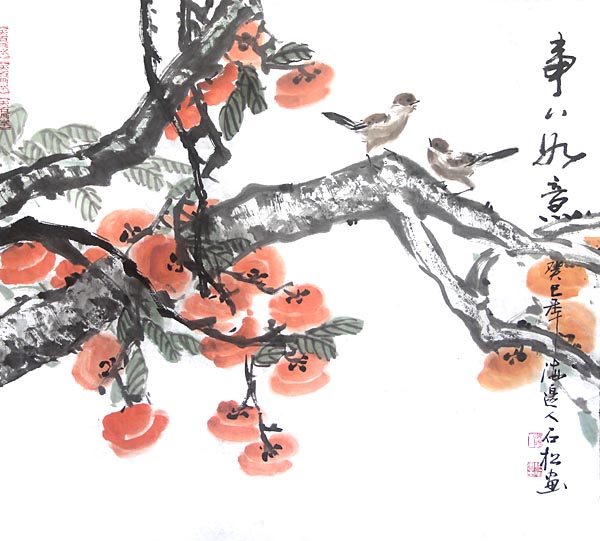 事々如意
癸巳年海邊人石松画